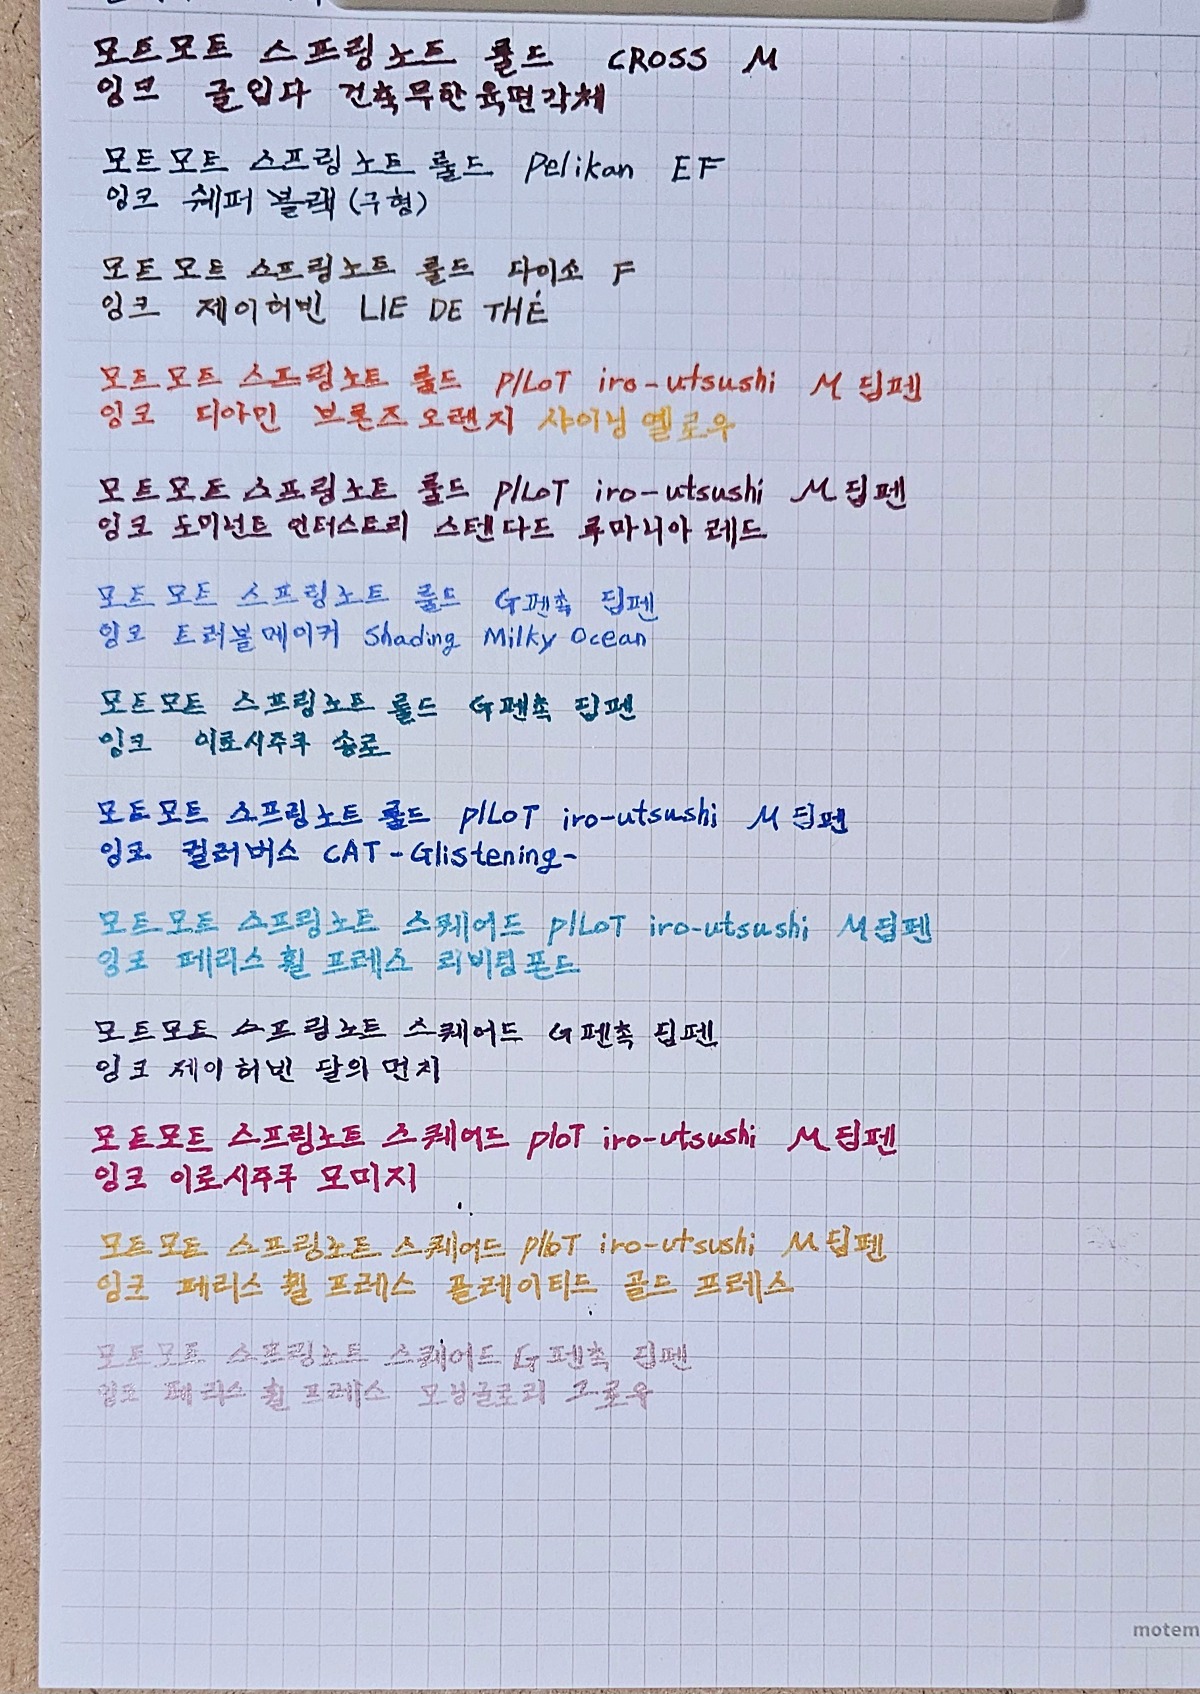 모트모트 스프링노트 룰드 CROSS M
잉크 글입다 건축무한육면각체
모트모트 스프링노트 룰드 Pelikan EF
잉크 쉐퍼 블랙 (구형)
모트모트 스프링노트 룰드 다이소 F
잉크 제이허빈 LIE DE THÉ
모트모트 스프링노트 룰드 PILOT iro-utsushi M 딥펜
잉크 디아민 브론즈 오렌지 샤이닝 옐로우
모트모트 스프링노트 룰드 PILOT iro-utsushi M 딥펜
잉크 도미넌트 인더스트리 스탠다드 루마니아 레드
모트모트 스프링노트 룰드 G펜촉 딥펜
잉크 트러블메이커 Shading Milky Ocean
모트모트 스프링노트 룰드 G펜촉 딥펜
잉크 이로시주쿠 송로
모트모트 스프링노트 룰드 PILOT iro-utsushi M 딥펜
잉크 컬러버스 CAT -Glistening-
모트모트 스프링노트 스퀘어드 PILOT iro-utsushi M 딥펜
잉크 페리스 휠 프레스 리비텅 폰드
모트모트 스프링노트 스퀘어드 G펜촉 딥펜
잉크 제이허빈 달의 먼지
모트모트 스프링노트 스퀘어드 PIoT iro-utsushi M 딥펜
잉크 이로시주쿠 모미지
모트모트 스프링노트 스퀘어드 PIloT iro-utsushi M 딥펜
잉크 페리스 휠 프레스 플레이티드 골드 프레스
모트모트 스프링노트 스퀘어드 G펜촉 딥펜
잉크 페리스 휠 프레스 모닝글로리 그로우
motem